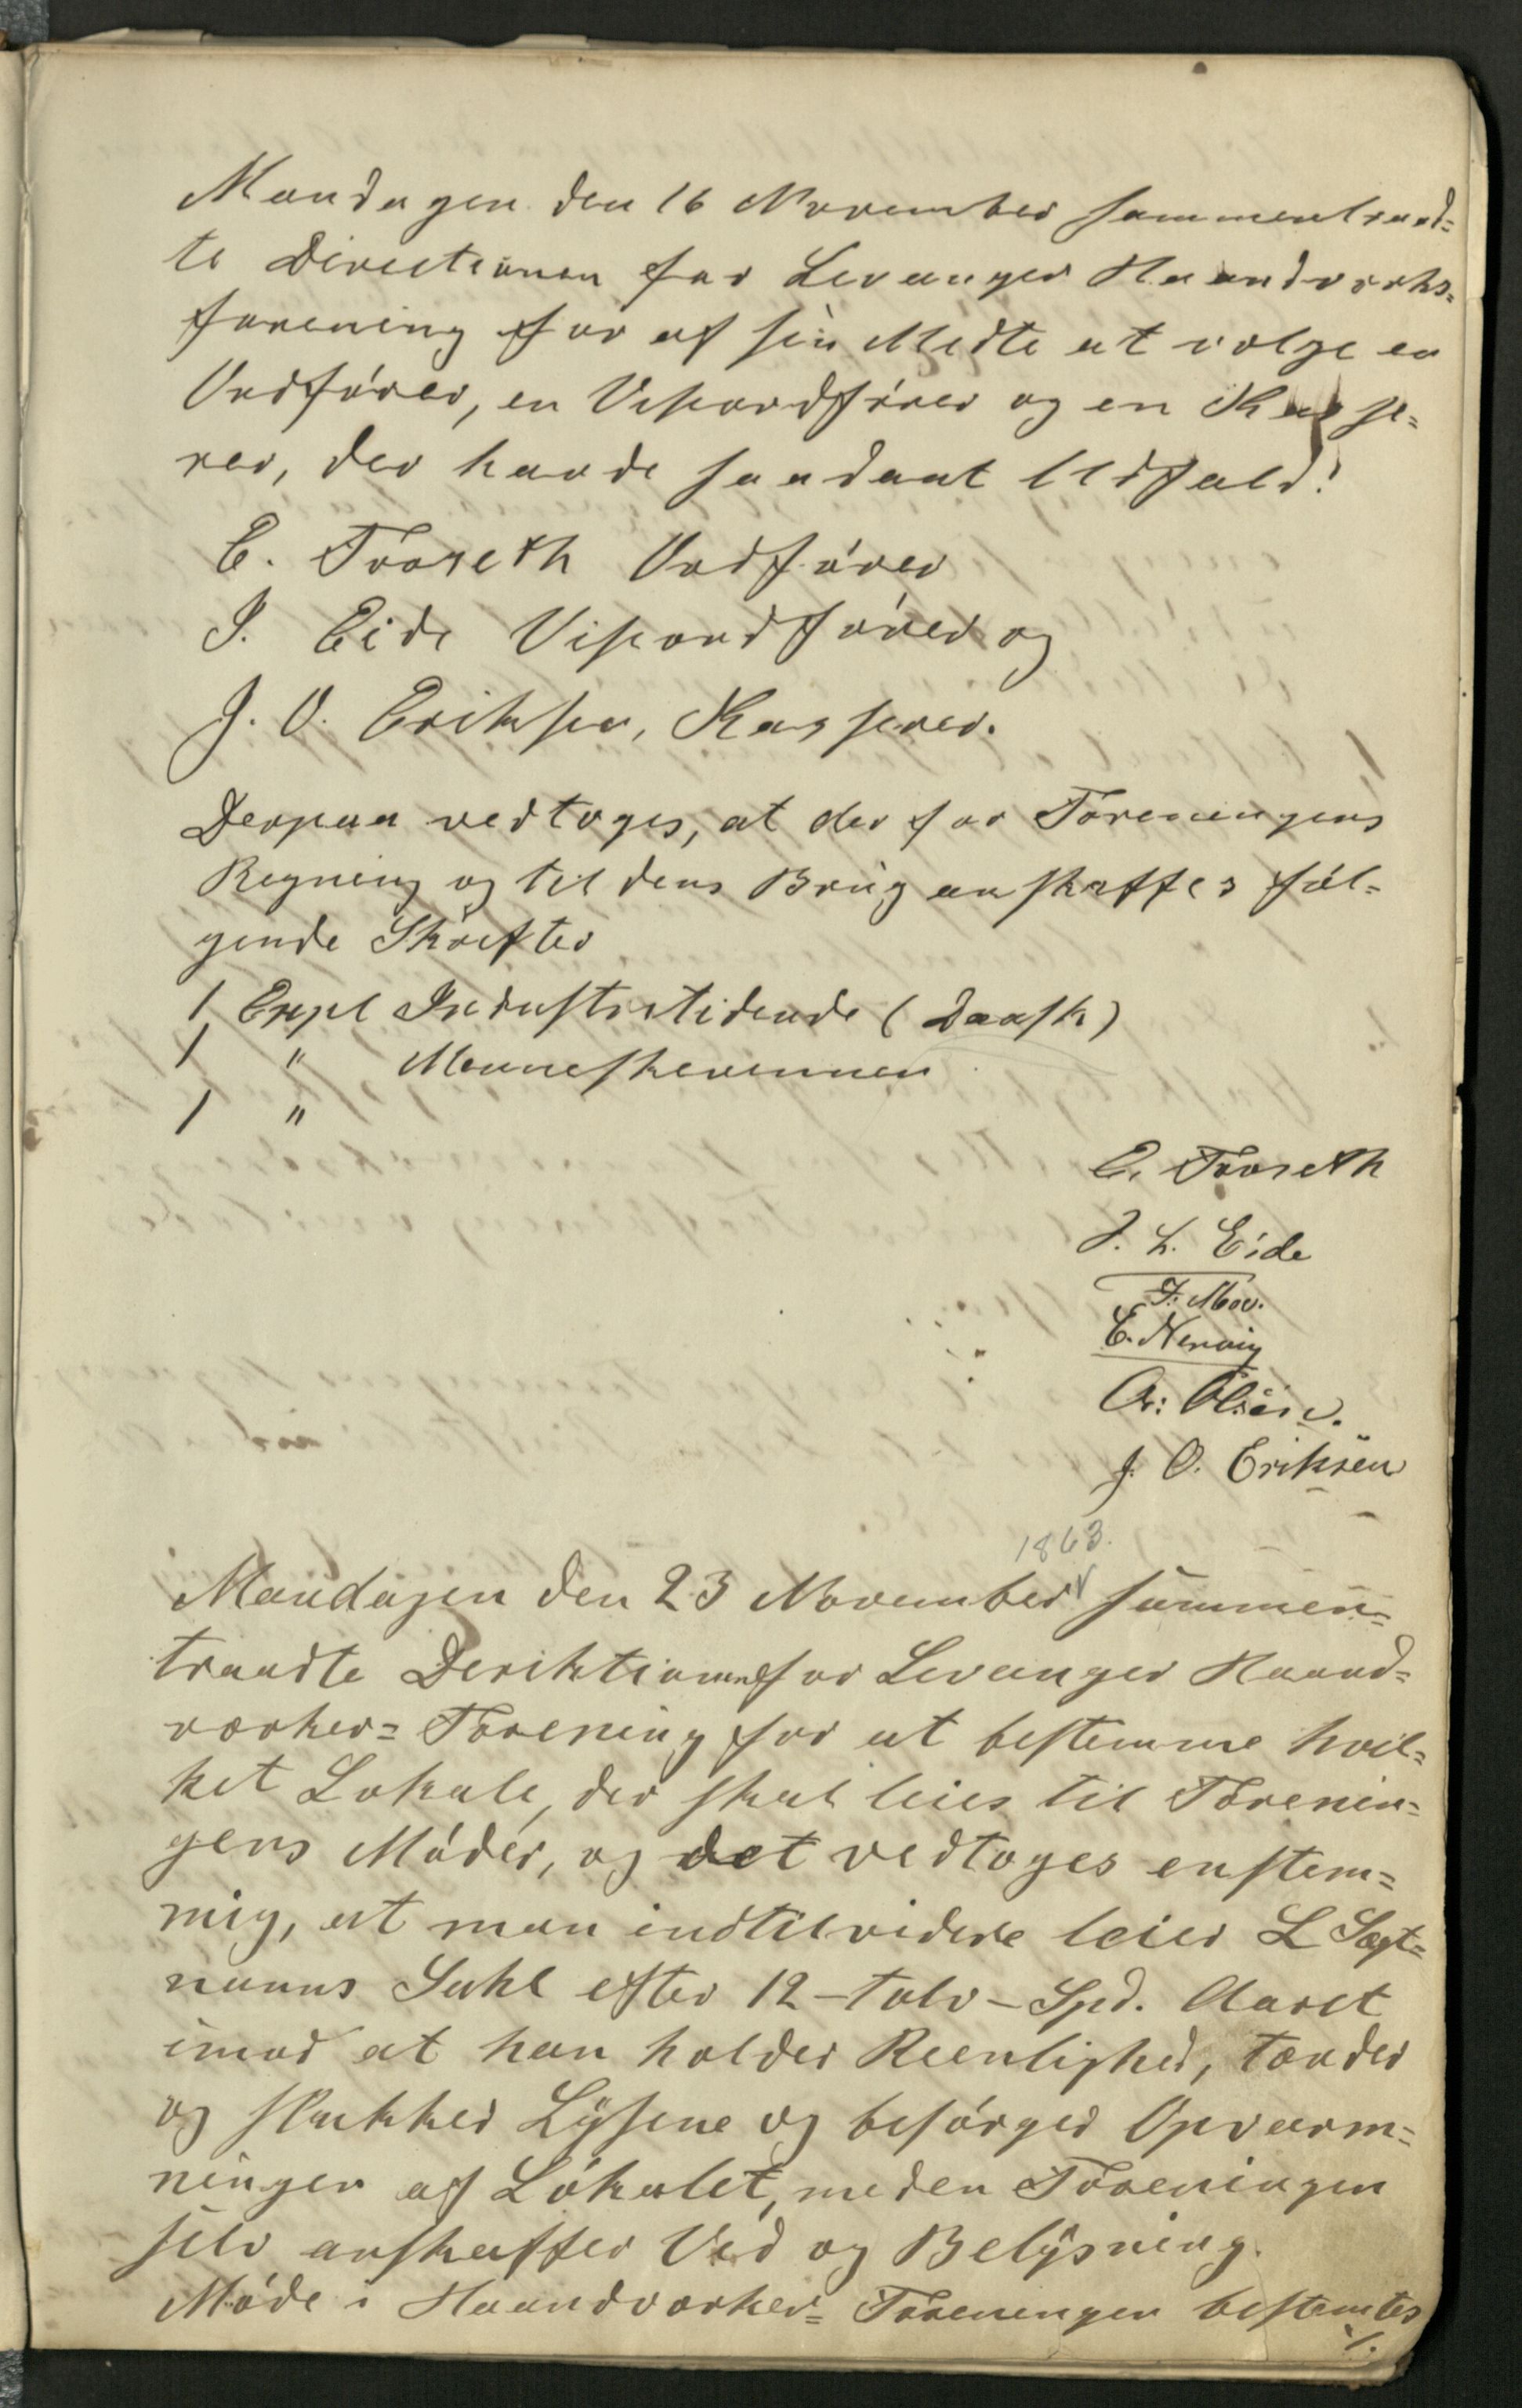 Mandagen den 16 November sammentraad=
te Directionen for Levanger Haandværks=
forening for af sin Midte at vælge en
Ordfører, en Viseordfører og en Kasse=
rer, der havde saadant Udfald:
E. Froseth Ordfører
J. Eide Viseordfører og
J. O. Eriksen, Kasserer.
Derpaa vedtoges, at der for Foreningens
Regning og til dens Brug anskaffes føl=
gende Skrifter
1 Expl Industritidende (Dansk)
1 " Menneskevennen
1 "
E. Froseth
J. L. Eide
F. Moe.
E. Nervig
A: Olsen.
J. O. Eriksen
1863.
Mandagen den 23 November sammen=
traadte Deriktionen for Levanger Haand=
værker=Forening for at bestemme hvil=
ket Lokale, der skal leies til Forenin=
gens Møder, og det vedtoges enstem=
mig, at man indtilvidere leier L Sægt=
nanns Sahl efter 12 - tolv - Spd. Aaret
imod at han holder Reenlighed, tænder
og slukker Lysene og besørger Opvarm=
ningen af Lokalet, meden Foreningen
selv anskaffer Ved og Belysning.
Møde i Haandværker=Foreningen bestemtes